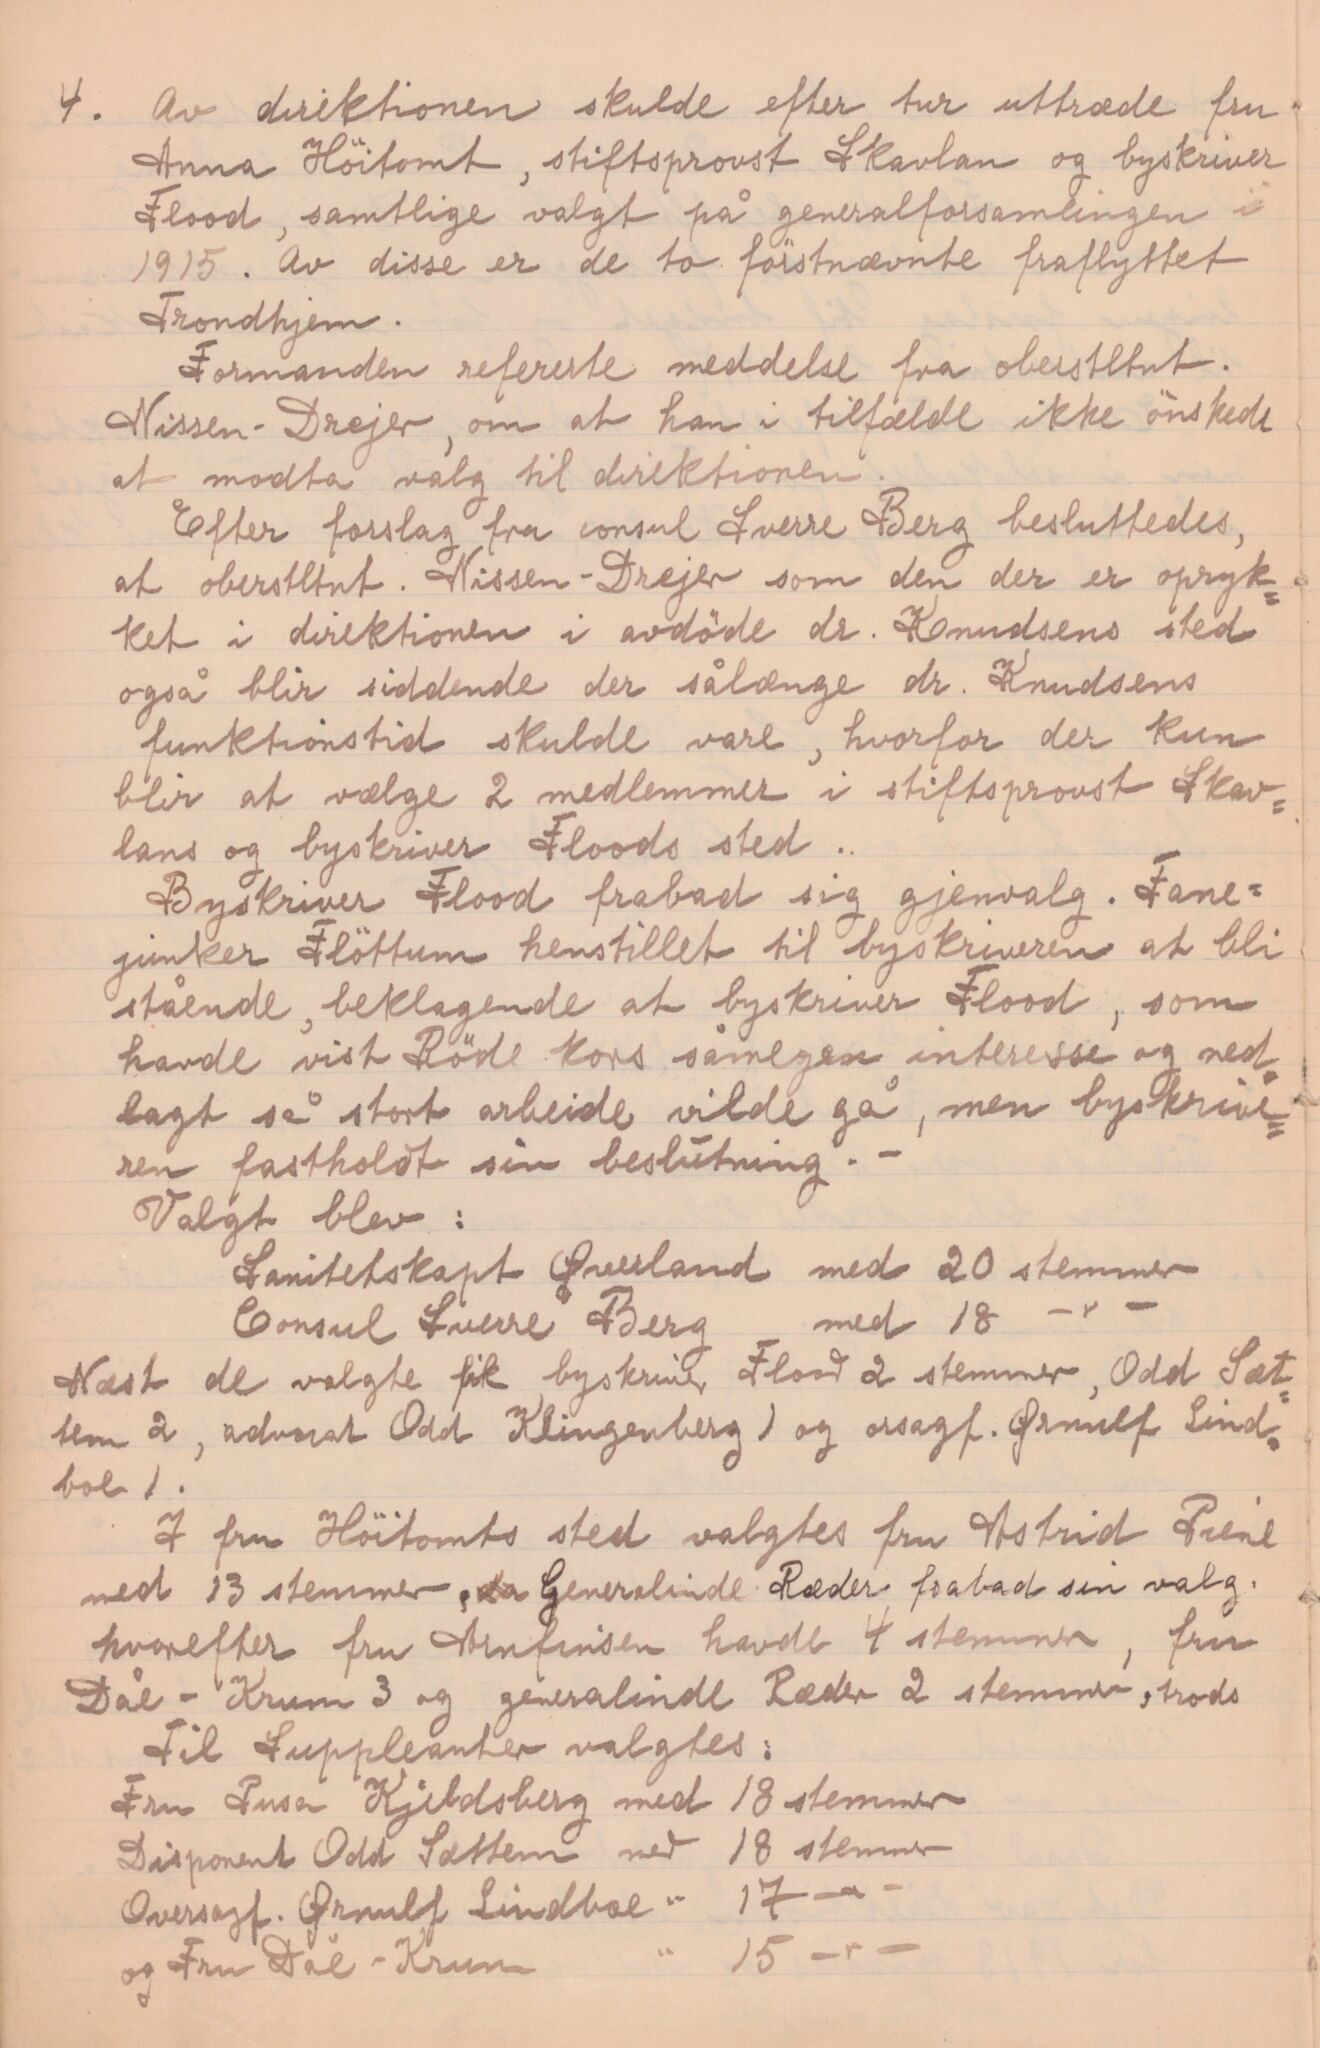 4. Av direktionen skulde efter tur uttræde fru
Anna Höitomt, stiftsprovst Skavlan og byskriver
Flood, samtlige valgt på generalforsamlingen i
1915. Av disse er de to förstnævnte fraflyttet
Trondhjem.
Formanden refererte meddelse fra oberstltnt.
Nissen-Drejer, om at han i tilfælde ikke önskede
at modta valg til direktionen.
Efter forslag fra consul Sverre Berg besluttedes,
at oberstltnt. Nissen-Drejer som den der er opryk=
ket i direktionen i avdöde dr. Knudsens sted
også blir siddende der sålænge dr. Knudsens
funktionstid skulde vare, hvorfor der kun
blir at vælge 2 medlemmer i stiftsprovst Skav=
lans og byskriver Floods sted..
Byskriver Flood frabad sig gjenvalg. Fane=
junker Flöttum henstillet til byskriveren at bli
stående, beklagende at byskriver Flood, som
havde vist Röde kors såmegen interesse og ned=
lagt så stort arbeide vilde gå, men byskrive=
ren fastholdt sin beslutning. -
Valgt blev:
Sanitetskapt Øverland med 20 stemmer
Consul Sverre Berg med 18 -"-
Næst de valgte fik byskriver Flood 2 stemmer, Odd Sæt=
tem 2, advocat Odd Klingenberg 1 og orsagf. Ørnulf Lind=
boe 1.
I fru Höitomts sted valgtes fru Astrid Piene
med 13 stemmer, da Generalinde Ræder frabad sin valg.
hvorefter fru Arnfinsen havde 4 stemmer, fru
Dåe-Krum 3 og generalinde Ræder 2 stemmer, trods
Til Suppleanter valgtes:
Fru Pusa Kjeldsberg med 18 stemmer
Disponent Odd Sættem med 18 stemmer
Oversagf. Ørnulf Lindboe " 17 -"-
og Fru Dåe-Krum " 15 -"-